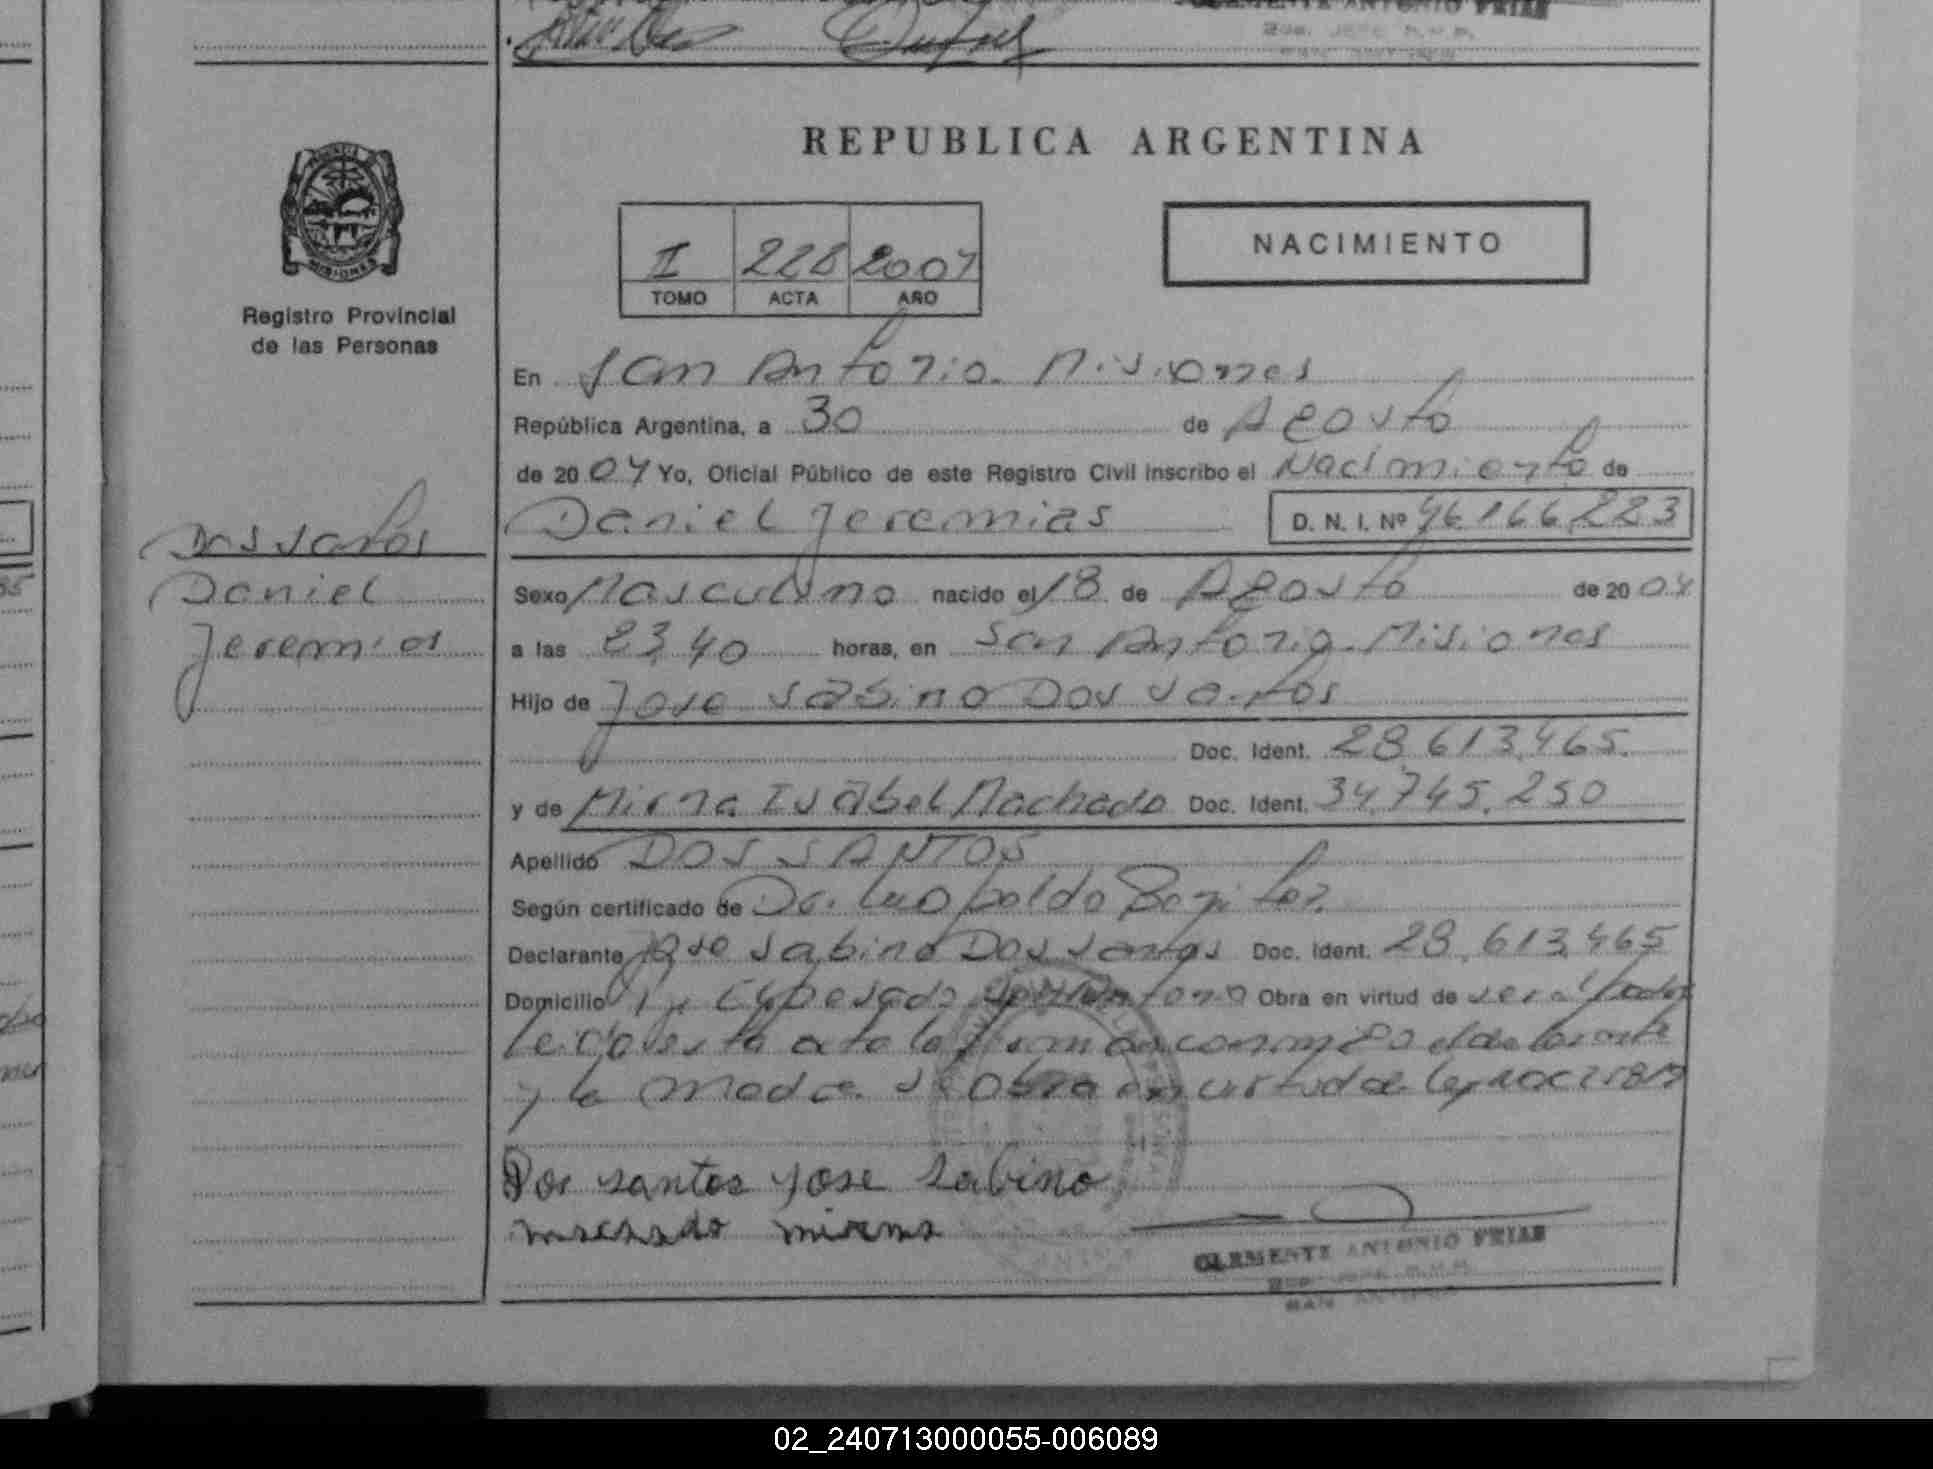 CLEMENTE ANTONIO FRIAS
REPUBLICA ARGENTINA
PROVINCIA DE
MISIONES
Registro Provincial
de las Personas
I 228 2004
TOMO ACTA AÑO
NACIMIENTO
En San Antonio. Misiones
República Argentina, a 30 de Agosto
de 2004 Yo, Oficial Público de este Registro Civil inscribo el Nacimiento de
Daniel Jeremias D. N. I. Nº 46.166.223
Dos Santos
Daniel
Jeremias
Sexo Masculino nacido el 18 de Agosto de 2004
a las 23,40 horas, en San Antonio. Misiones
Hijo de Jose Sabino Dos Santos
Doc. Ident. 28.613.465.
y de Mirna Isabel Machado Doc. Ident. 34.745.250
Apellido DOS SANTOS
Según certificado de Dr. Leopoldo Benitez
Declarante Jose Sabino Dos Santos Doc. Ident. 28.613.465
Domicilio San Antonio Obra en virtud de ser
leida esta acta la firman conmigo el declarante
y la madre se Obra en virtud de ley
Dos santos Jose Sabino
machado mirna
CLEMENTE ANTONIO FRIAS
02_240713000055-006089